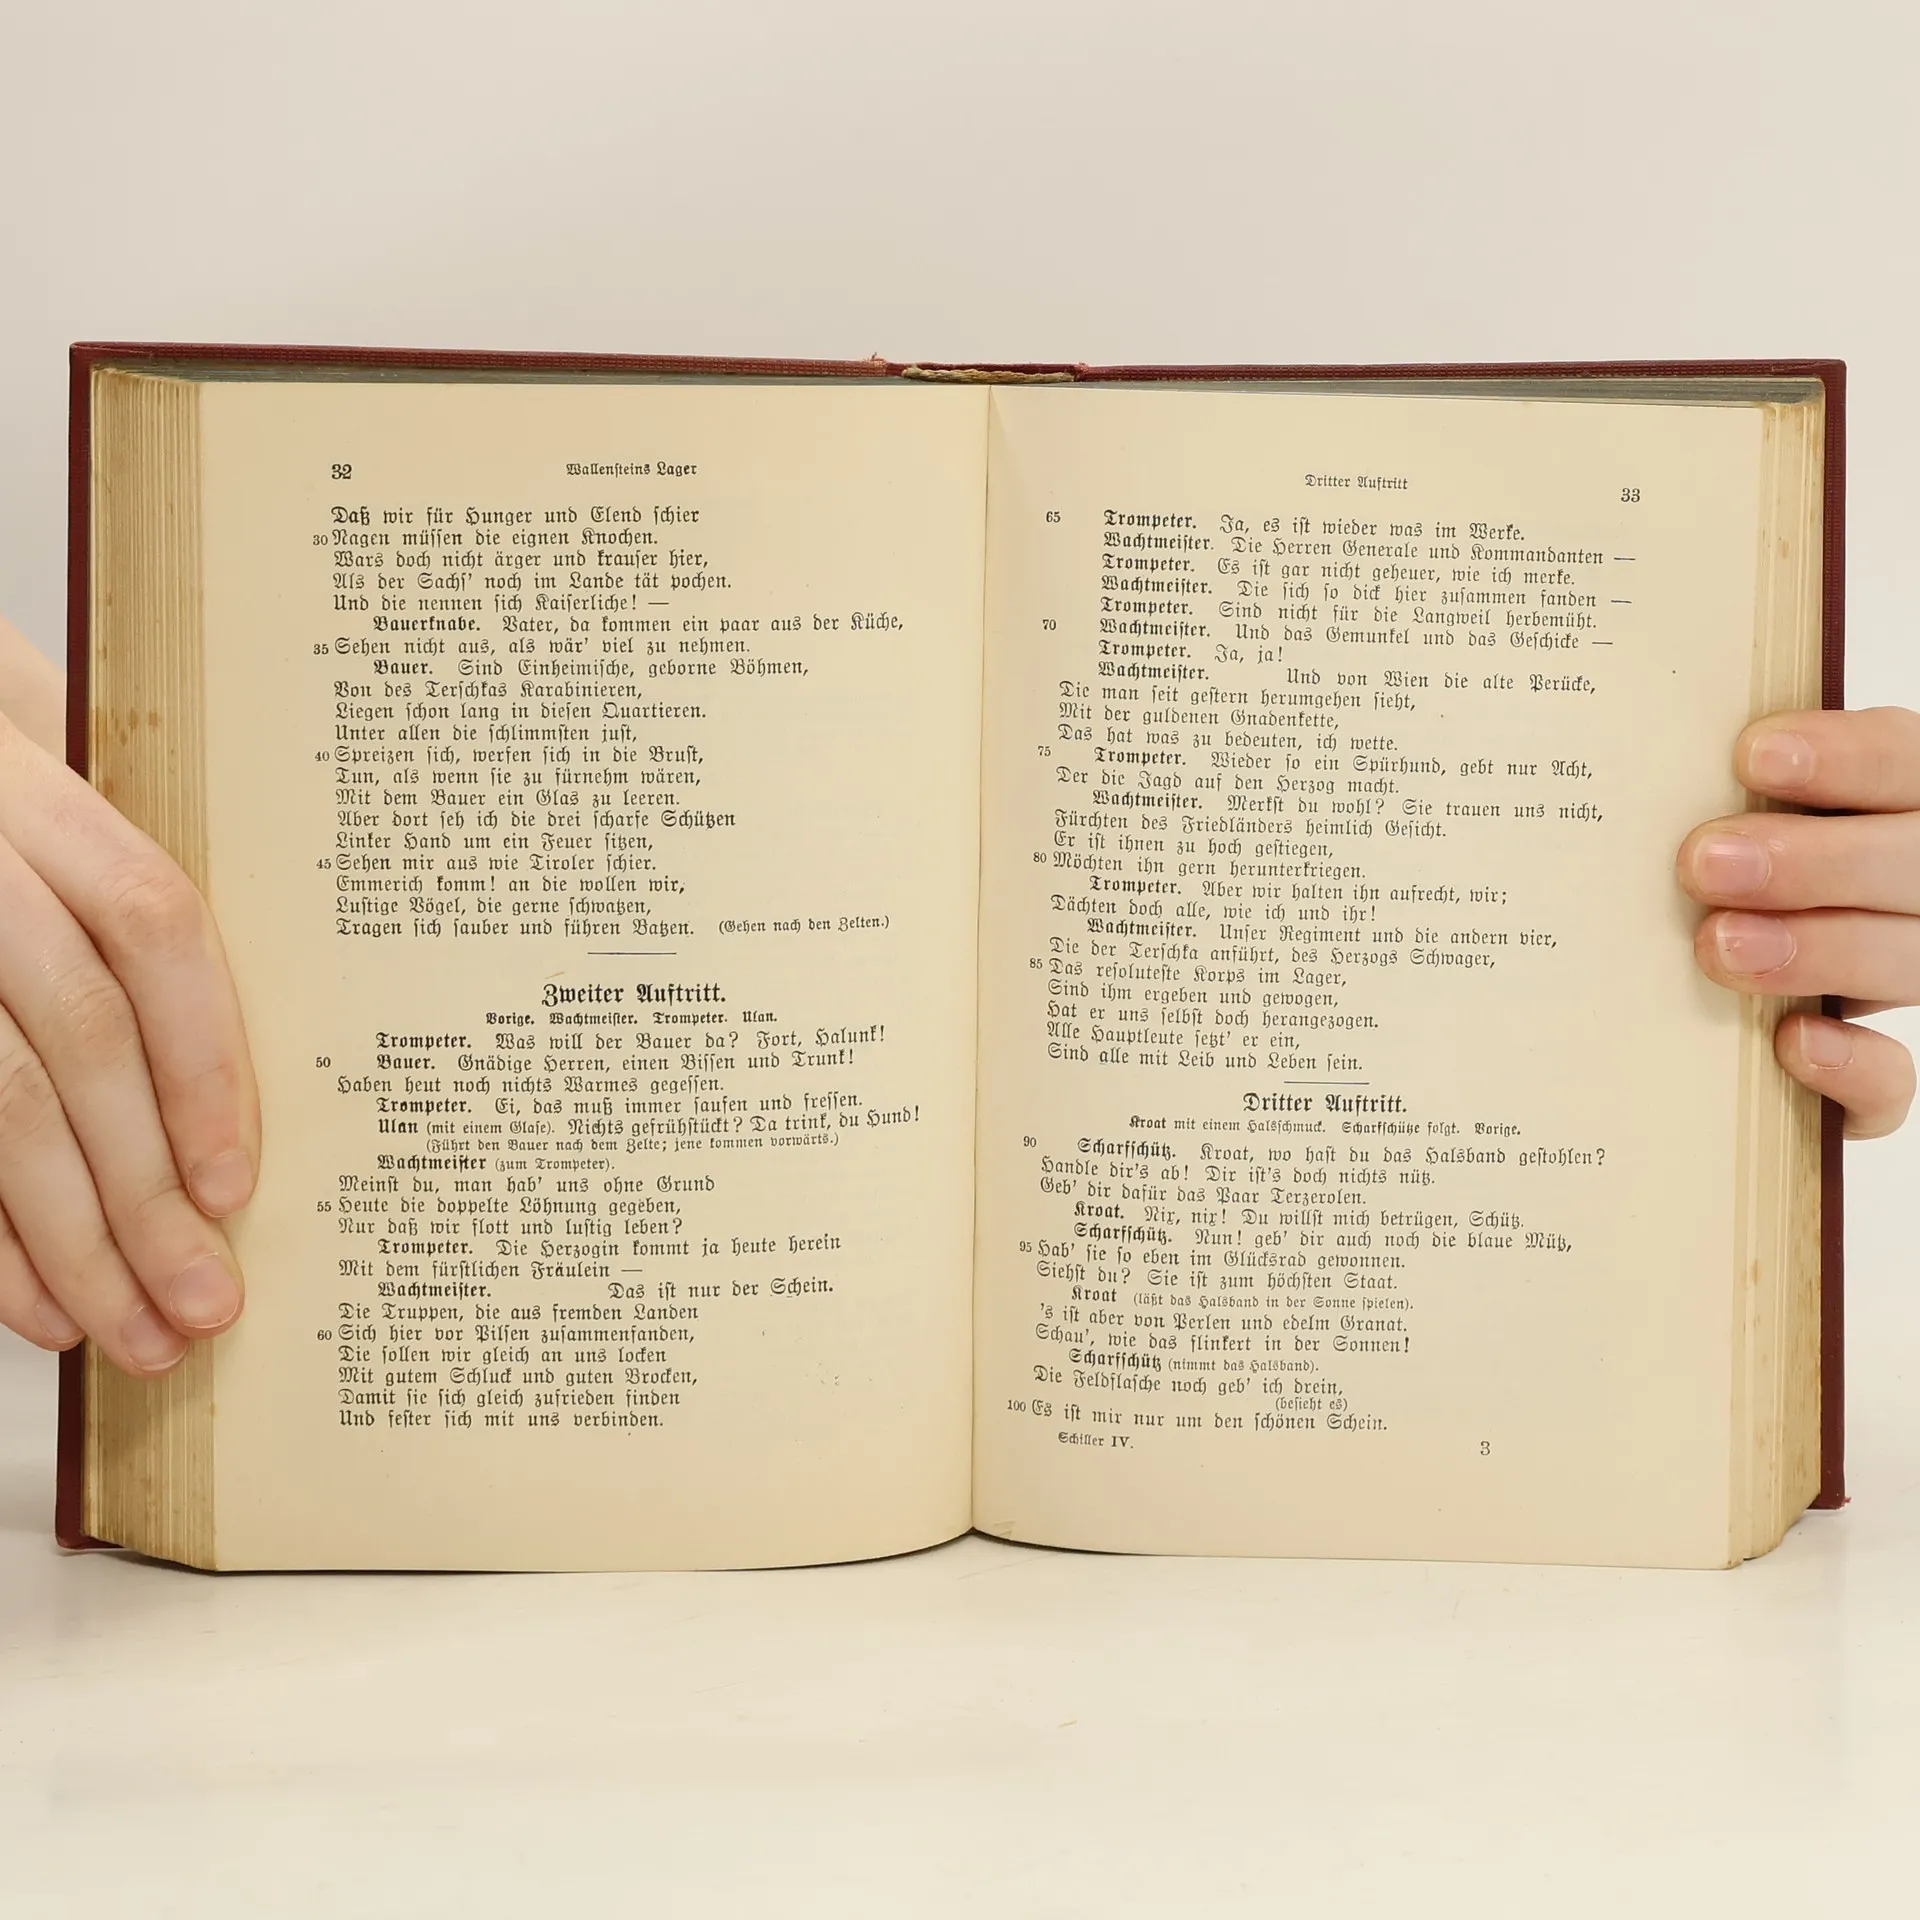 32
Wallensteins Lager
Daß wir für Hunger und Elend schier
30 Nagen müssen die eignen Knochen.
Wars doch nicht ärger und krauser hier,
Als der Sachs' noch im Lande tät pochen.
Und die nennen sich Kaiserliche! —
Bauerknabe. Vater, da kommen ein paar aus der Küche,
35 Sehen nicht aus, als wär' viel zu nehmen.
Bauer. Sind Einheimische, geborne Böhmen,
Von des Terschkas Karabinieren,
Liegen schon lang in diesen Quartieren.
Unter allen die schlimmsten just,
40 Spreizen sich, werfen sich in die Brust,
Tun, als wenn sie zu fürnehm wären,
Mit dem Bauer ein Glas zu leeren.
Aber dort seh ich die drei scharfe Schützen
Linker Hand um ein Feuer sitzen,
45 Sehen mir aus wie Tiroler schier.
Emmerich komm! an die wollen wir,
Lustige Vögel, die gerne schwatzen,
Tragen sich sauber und führen Batzen. (Gehen nach den Zelten.)
Zweiter Auftritt.
Vorige. Wachtmeister. Trompeter. Ulan.
Trompeter. Was will der Bauer da? Fort, Halunk!
50 Bauer. Gnädige Herren, einen Bissen und Trunk!
Haben heut noch nichts Warmes gegessen.
Trompeter. Ei, das muß immer saufen und fressen.
Ulan (mit einem Glase). Nichts gefrühstückt? Da trink, du Hund!
(Führt den Bauer nach dem Zelte; jene kommen vorwärts.)
Wachtmeister (zum Trompeter).
Meinst du, man hab' uns ohne Grund
55 Heute die doppelte Löhnung gegeben,
Nur daß wir flott und lustig leben?
Trompeter. Die Herzogin kommt ja heute herein
Mit dem fürstlichen Fräulein —
Wachtmeister. Das ist nur der Schein.
Die Truppen, die aus fremden Landen
60 Sich hier vor Pilsen zusammenfanden,
Die sollen wir gleich an uns locken
Mit gutem Schluck und guten Brocken,
Damit sie sich gleich zufrieden finden
Und fester sich mit uns verbinden.
Dritter Auftritt
33
65 Trompeter. Ja, es ist wieder was im Werke.
Wachtmeister. Die Herren Generale und Kommandanten —
Trompeter. Es ist gar nicht geheuer, wie ich merke.
Wachtmeister. Die sich so dick hier zusammen fanden —
Trompeter. Sind nicht für die Langweil herbemüht.
70 Wachtmeister. Und das Gemunkel und das Geschicke —
Trompeter. Ja, ja!
Wachtmeister. Und von Wien die alte Perücke,
Die man seit gestern herumgehen sieht,
Mit der guldenen Gnadenkette,
Das hat was zu bedeuten, ich wette.
75 Trompeter. Wieder so ein Spürhund, gebt nur Acht,
Der die Jagd auf den Herzog macht.
Wachtmeister. Merkst du wohl? Sie trauen uns nicht,
Fürchten des Friedländers heimlich Gesicht.
Er ist ihnen zu hoch gestiegen,
80 Möchten ihn gern herunterkriegen.
Trompeter. Aber wir halten ihn aufrecht, wir;
Dächten doch alle, wie ich und ihr!
Wachtmeister. Unser Regiment und die andern vier,
Die der Terschka anführt, des Herzogs Schwager,
85 Das resoluteste Korps im Lager,
Sind ihm ergeben und gewogen,
Hat er uns selbst doch herangezogen.
Alle Hauptleute setzt' er ein,
Sind alle mit Leib und Leben sein.
Dritter Auftritt.
Kroat mit einem Halsschmuck. Scharfschütze folgt. Vorige.
90 Scharfschütz. Kroat, wo hast du das Halsband gestohlen?
Handle dir's ab! Dir ist's doch nichts nütz.
Geb' dir dafür das Paar Terzerolen.
Kroat. Nix, nix! Du willst mich betrügen, Schütz.
Scharfschütz. Nun! geb' dir auch noch die blaue Mütz,
95 Hab' sie so eben im Glücksrad gewonnen.
Siehst du? Sie ist zum höchsten Staat.
Kroat (läßt das Halsband in der Sonne spielen).
's ist aber von Perlen und edelm Granat.
Schau', wie das flinkert in der Sonnen!
Scharfschütz (nimmt das Halsband).
Die Feldflasche noch geb' ich drein,
(besieht es)
100 Es ist mir nur um den schönen Schein.
Schiller IV.
3